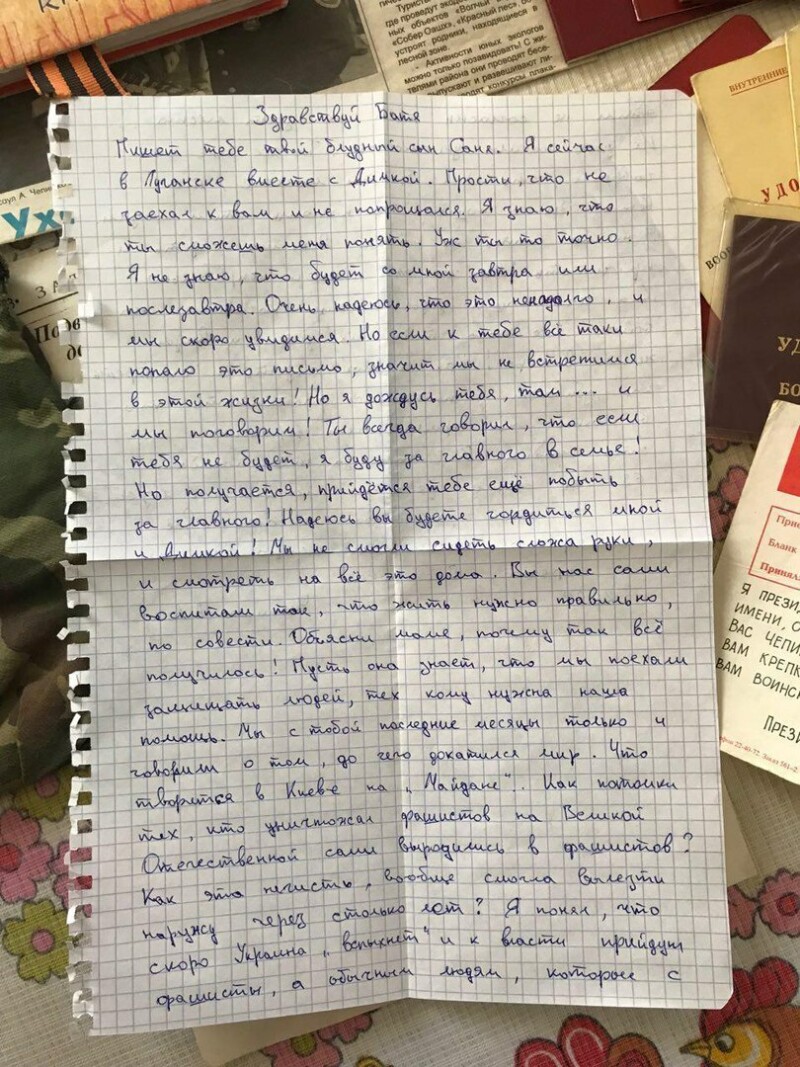 где проведут экол
ных объектов «Вогный
«Собер Оашх», «Красный лес»
устроят родники, находящиеся в
лесной зоне.
Активности юных экологов
можно только позавидовать! С жи-
телями района они проводят бесе-
выпускают и развешивают ли-
водят конкурсы плака-
ВНУТРЕННИЕ
УДО
ВООР
УД
БО
саул А. Чепи
Здравствуй Батя
Пишет тебе твой блудный сын Саня. Я сейчас
в Луганске вместе с Димкой. Прости, что не
заехал к вам и не попрощался. Я знаю, что
ты сможешь меня понять. Уж ты то точно.
Я не знаю, что будет со мной завтра или
послезавтра. Очень надеюсь, что это ненадолго, и
мы скоро увидимся. Но если к тебе всё таки
попало это письмо, значит мы не встретимся
в этой жизни! Но я дождусь тебя, там ... и
мы поговорим! Ты всегда говорил, что если
тебя не будет, я буду за главного в семье!
Но получается, прийдётся тебе ещё побыть
за главного! Надеюсь вы будете гордиться мной
и Димкой! Мы не смогли сидеть сложа руки,
и смотреть на всё это дома. Вы нас сами
воспитали так, что жить нужно правильно,
по совести. Объясни маме, почему так всё
получилось! Пусть она знает, что мы поехали
защищать людей, тех кому нужна наша
помощь. Мы с тобой последние месяцы только и
говорили о том, до чего докатился мир. Что
творится в Киеве на „Майдане". Как потомки
тех, кто уничтожал фашистов на Великой
Отечественной сами выродились в фашистов?
Как эта нечисть, вообще смогла вылезти
наружу через столько лет? Я понял, что
скоро Украина „вспыхнет" и к власти прийдут
фашисты, а обычным людям, которые с
Бланк
Принял
Я ПРЕЗИ
ИМЕНИ, О
ВАС ЧЕПИ
ВАМ КРЕПК
ВАМ ВОИНСК
ПРЕЗИ